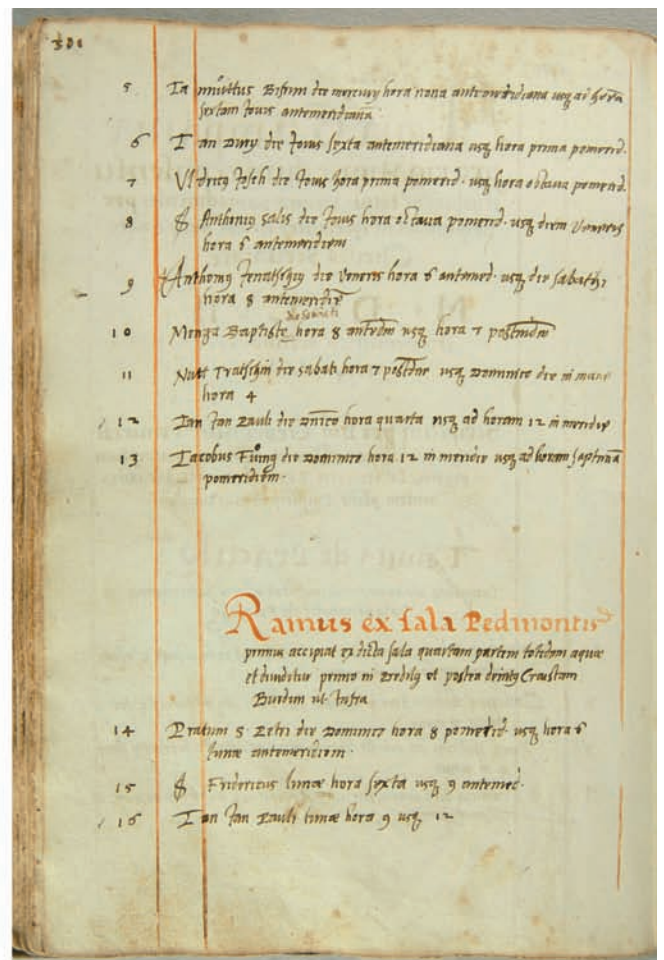 301
5 Ia nnuttus Bifrun die mercurij hora nona antemeridiana usq ad hora
sextam Jovis antemeridiana
6 Ian Dury die Jovis sexta antemeridiana usq hora prima pomerid.
7 Uldricq Joseh die Jovis hora prima pomerid. usq hora octava pomerid.
8 Anthoniq Salis die Jovis hora octava pomerid. usq diem Veneris
hora 6 antemeridiem
9 Anthoniq Jenatschq die Veneris hora 6 antemed. usq die sabathi
hora 8 antemeridie
die sabati
10 Menga Baptiste hora 8 usq hora 7
11 Nutt Tratschin die sabati hora 7 usq Dominico die in mane
hora 4
12 Ian Jan Pauli die dnico hora quarta usq ad horam 12 in meridie
13 Iacobus die Dominico hora 12 in meridie usq ad horam septima
pomeridiem.
Ramus ex sala Pedmontis
primus accipiat ex dicta sala quartam partem totidem aquae
et dividitur primo in et postea Craistam
Burdun ut Infra
14 Pratum S. Petri die Dominico hora 8 pomerid. usq hora 6
lunae antemeridiem.
15 Fridericus lunae hora sexta usq 9 antemed.
16 Ian Jan Pauli lunae hora 9 usq 12